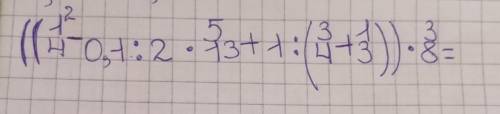 ((1/4² - 0,1 : 2 · 5/13 + 1 : (3/4 + 1/3)) · 3/8 =